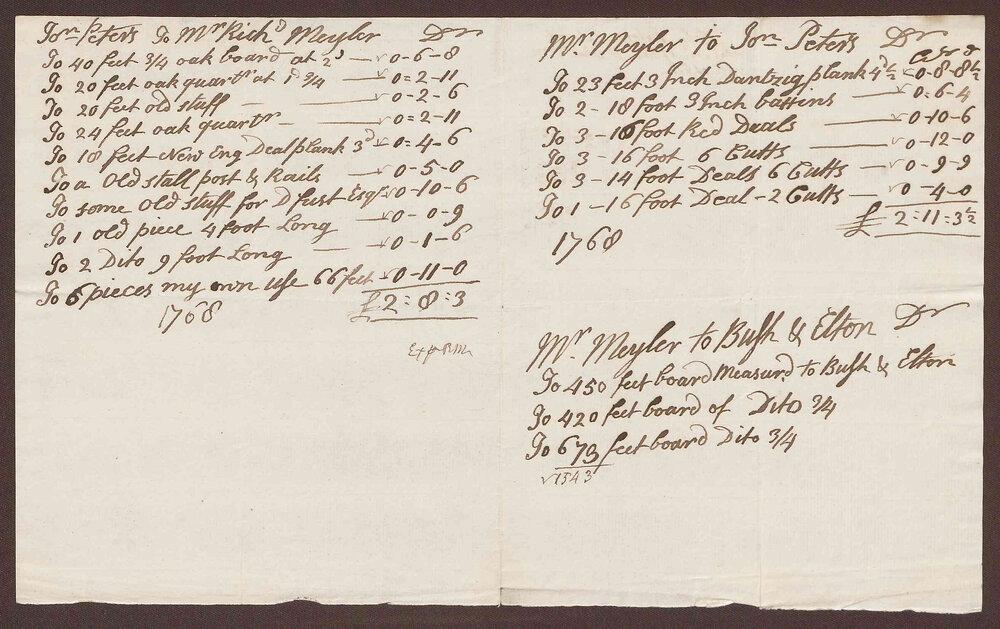 Jon Peters To Mr Richd Meyler Dr
To 40 feet 3/4 oak board at 2d — 0-6-8
To 20 feet oak quartr at 1d 3/4 0=2-11
To 20 feet old stuff — 0-2-6
To 24 feet oak quartr — 0=2-11
To 18 feet New Eng Deal plank 3d 0=4-6
To a old stall post & Rails 0-5-0
To some old stuff for D fust Esqr 0-10-6
To 1 old piece 4 foot Long 0-0-9
To 2 Dito 9 foot Long — 0-1-6
To 6 pieces my own use 66 feet 0-11-0
1768 £2=8=3
Mr. Meyler to Jon Peters Dr
To 23 feet 3 Inch Dantzig plank 4d 1/2 0-8-8 1/2
To 2-18 foot 3 Inch battins 0=6-4
To 3-16 foot Red Deals — 0-10-6
To 3-16 foot 6 Cutts — 0-12-0
To 3-14 foot Deals 6 Cutts — 0-9-9
To 1-16 foot Deal-2 Cutts — 0-4-0
£2=11=3 1/2
1768
Mr. Meyler to Bush & Elton Dr
To 450 feet board Measurd to Bush & Elton
To 420 feet board of Dito 3/4
To 673 feet board Dito 3/4
1543